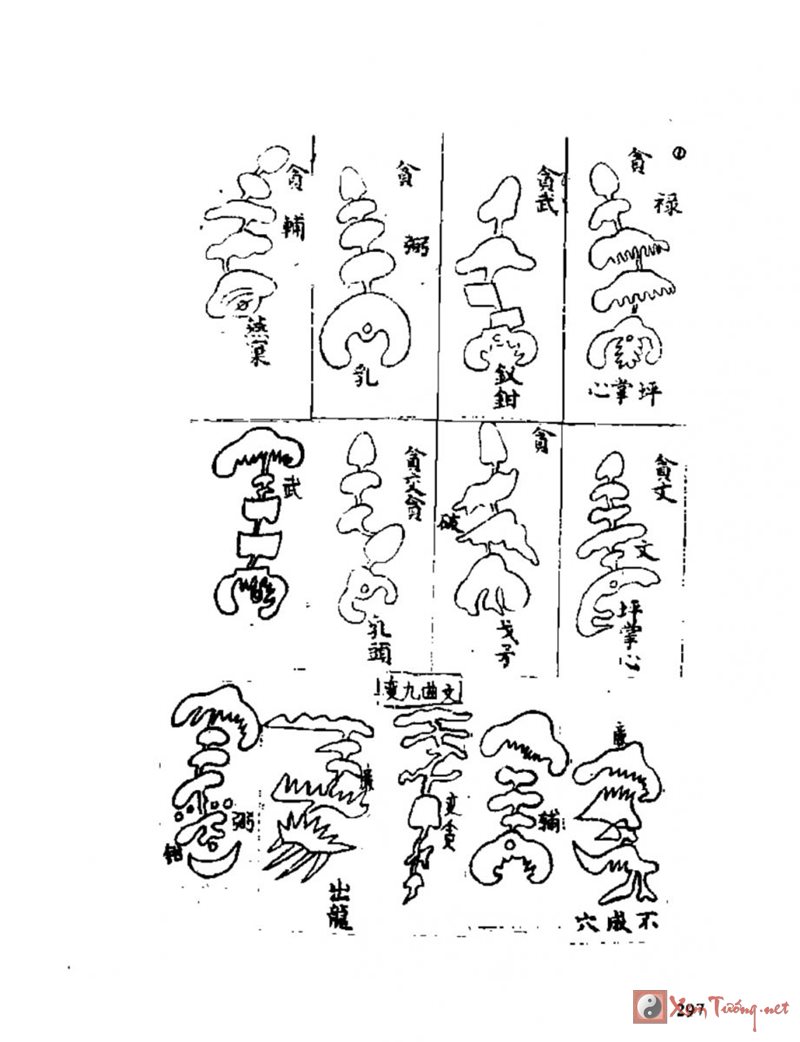 ①
貪
禄
坪掌心
貪武
釵鉗
貪
弼
乳
貪
輔
燕巢
貪文
文
坪掌心
貪
破
戈矛
貪交貪
乳頭
武
文曲九變
廉
不成穴
輔
變貪
廉
出龍
弼
鉗
297
XemTướng.net